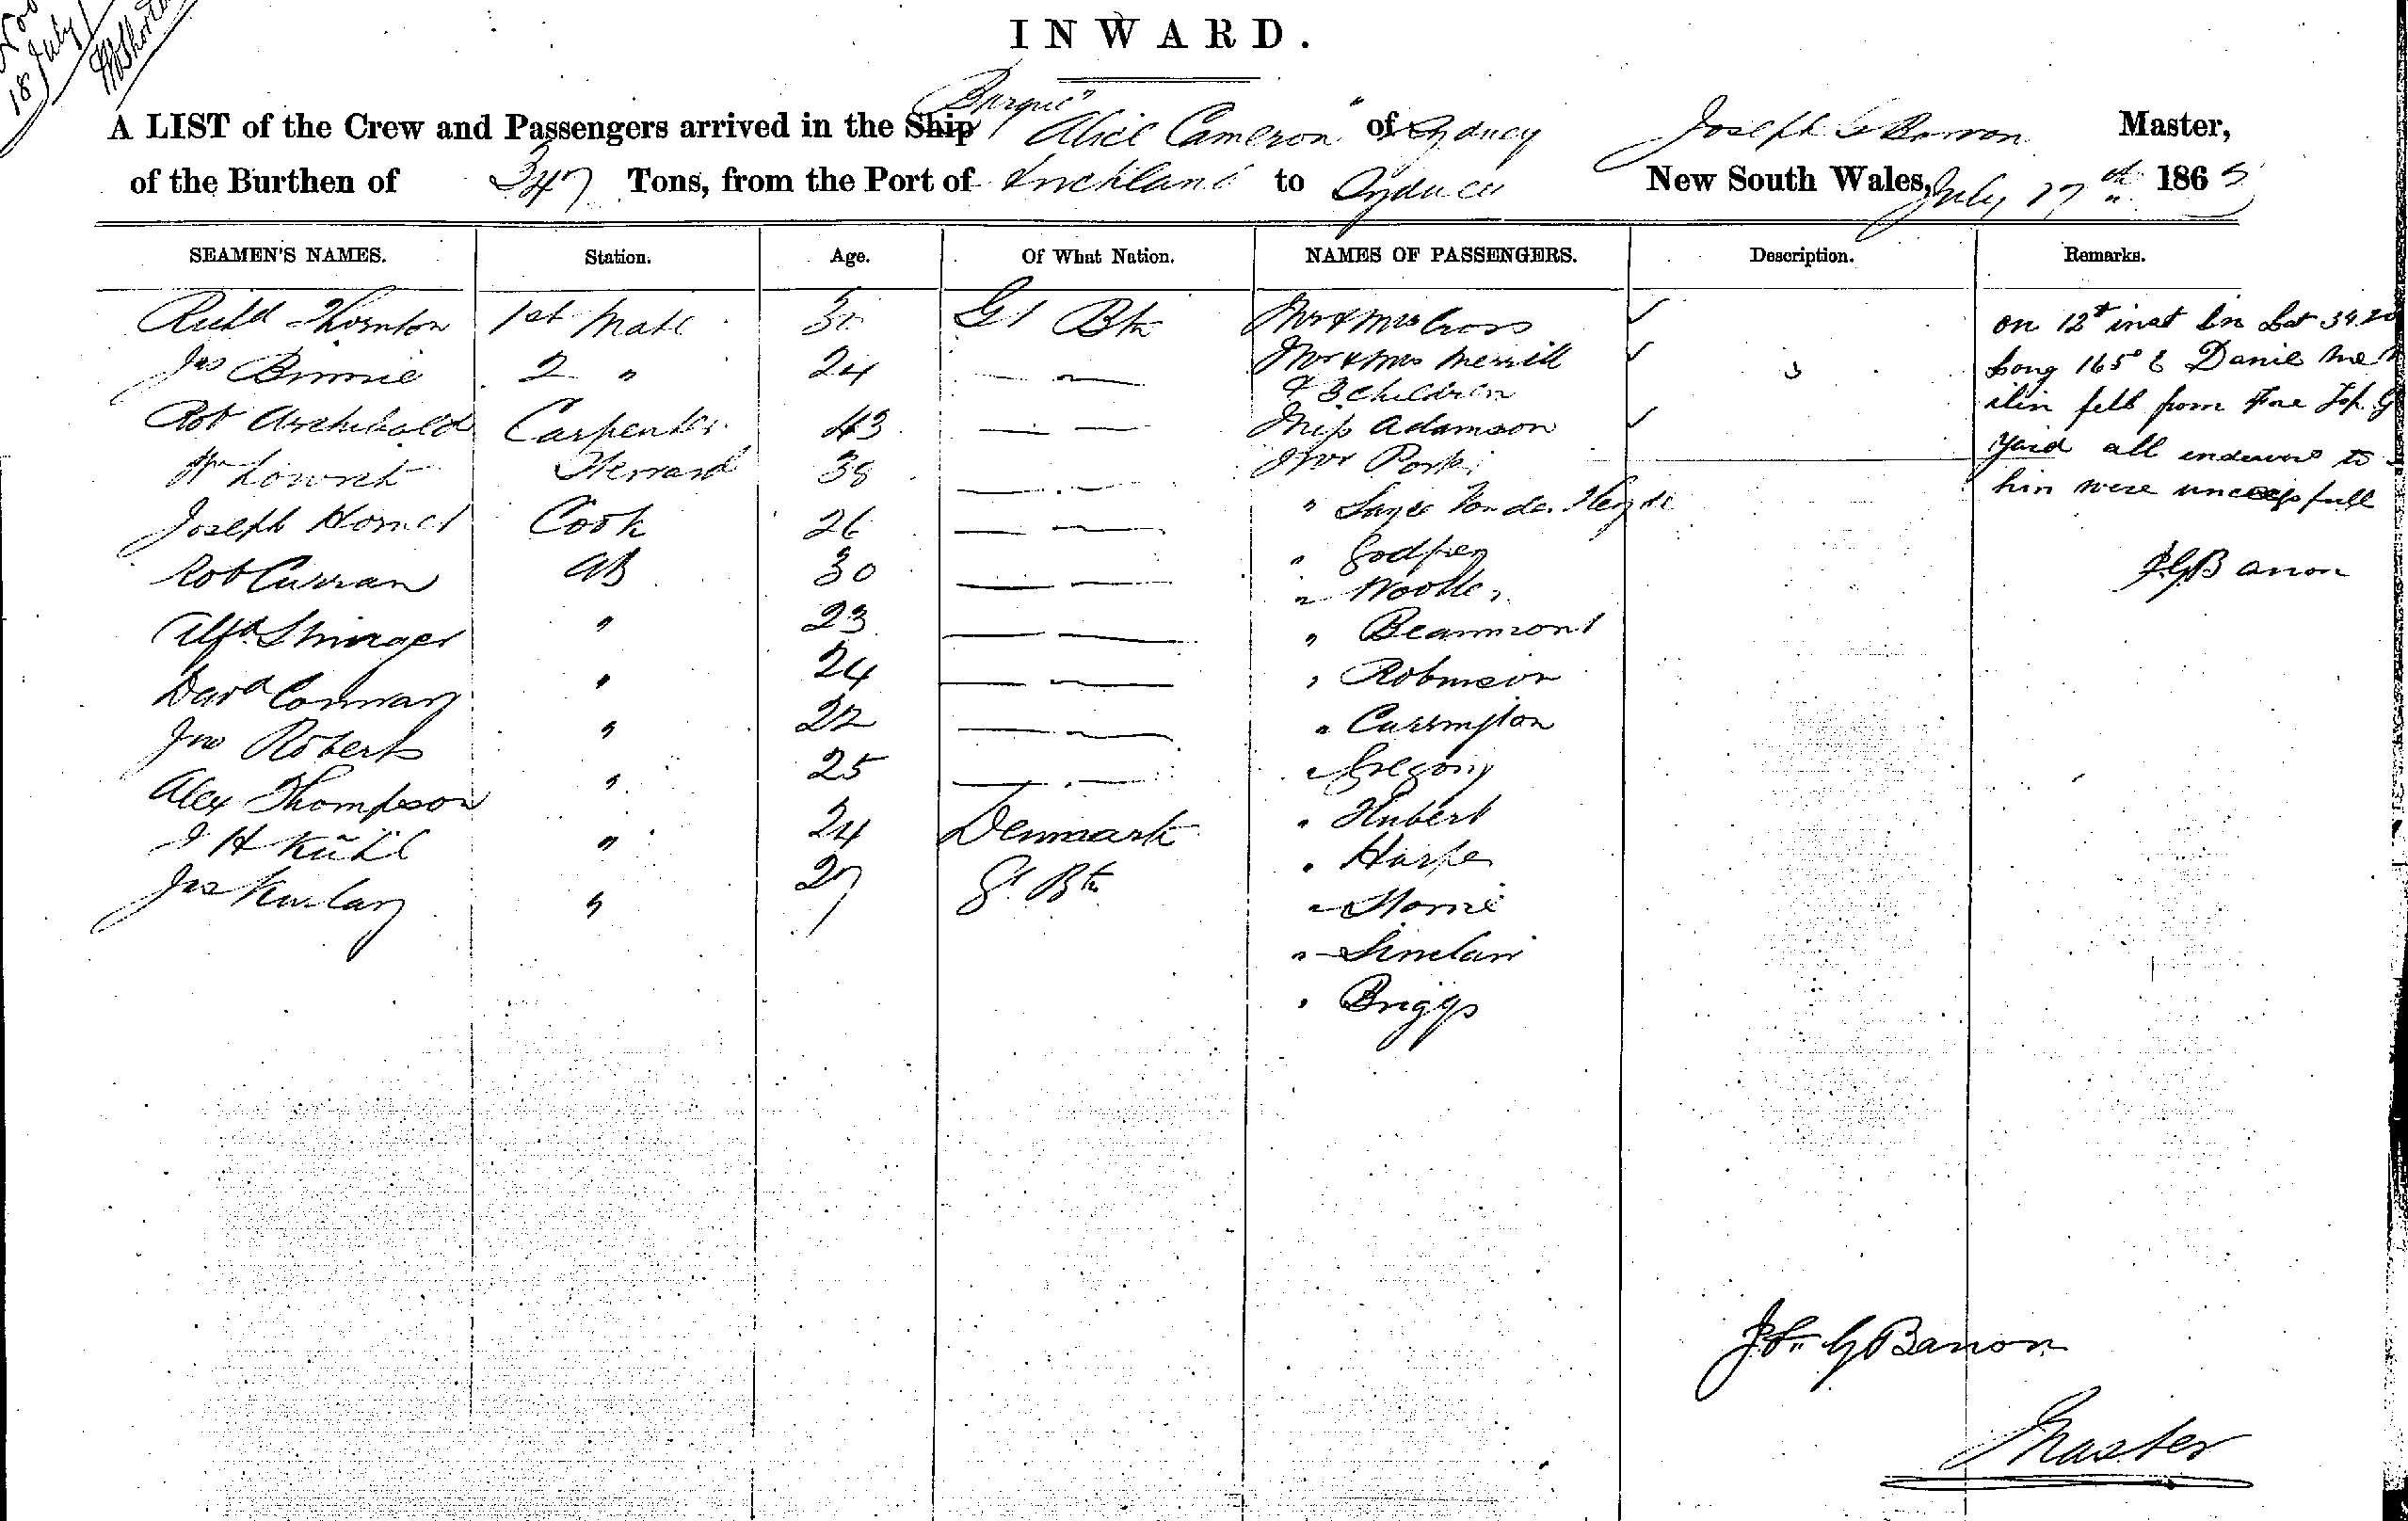 18 July
INWARD.
Barque
A LIST of the Crew and Passengers arrived in the Ship "Alice Cameron" of Sydney Joseph G Barron Master,
of the Burthen of 347 Tons, from the Port of Auckland to Sydney New South Wales, July 17th 1865
SEAMEN'S NAMES. Station. Age. Of What Nation. NAMES OF PASSENGERS. Description. Remarks.
Richd Thornton 1st Mate 30 Gt Btn Mr & Mrs Cross ✓ on 12th inst in Lat 34.20
Jas Binnie 2 " 24 — — Mr & Mrs Merrill ✓ Long 165° E Daniel
& 3 children
Rob Archibald Carpenter 43 — — Miss Adamson ✓ fell from Fore Top G
Wm Steward 38 — — Mr yard all to
Joseph Cook 26 — — " Vonder him were
Rob Curran AB 30 — — " Godfrey J.G. Barron
"
Alfd Stringer " 23 — — " Beaumont
Davd Conway " 24 — — " Robinson
Jno Roberts " 22 — — " Carrington
Alex Thompson " 25 — — " Gregory
J H Kühl " 24 Denmark " Hubert
Jas " 27 Gt Btn " Harper
"
" Sinclair
" Briggs
Jos G Barron
Master